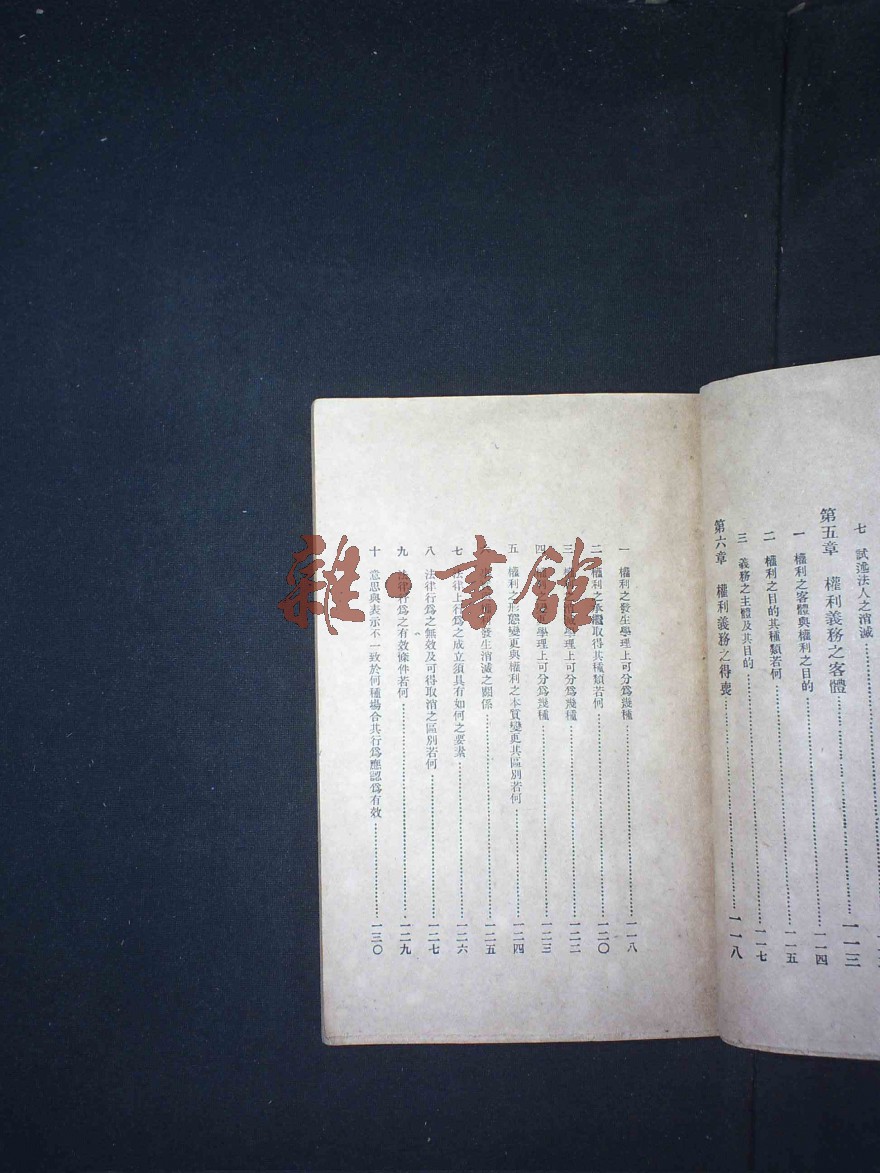 七 試述法人之消滅
一一三
第五章 權利義務之客體
一一三
一 權利之客體與權利之目的
一一四
二 權利之目的其種類若何
一一五
三 義務之主體及其目的
一一七
第六章 權利義務之得喪
一一八
一 權利之發生學理上可分爲幾種
一一八
二 權利之承繼取得其種類若何
一二〇
三 權利 學理上可分爲幾種
一二二
四 學理上可分爲幾種
一二三
五 權利之形態變更與權利之本質變更其區別若何
一二四
發生消滅之關係
一二五
七 法律上行爲之成立須具有如何之要素
一二六
八 法律行爲之無效及可得取消之區別若何
一二七
九 法律行爲之有效條件若何
一二九
十 意思與表示不一致於何種場合其行爲應認爲有效
一三〇
雜·書館